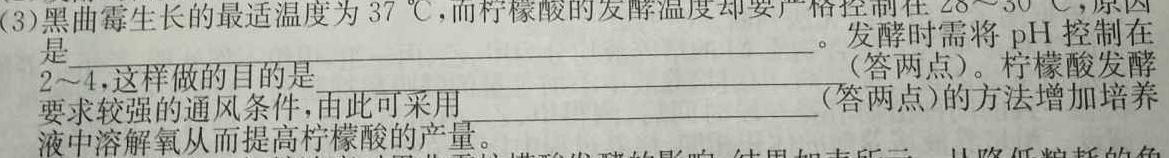 (3)黑曲霉生长的最适温度为 37 ℃,而柠檬酸的发酵温度却要严格控制在 28～30 ℃,原因
是____________________。发酵时需将 pH 控制在
2～4,这样做的目的是____________________(答两点)。柠檬酸发酵
要求较强的通风条件,由此可采用____________________(答两点)的方法增加培养
液中溶解氧从而提高柠檬酸的产量。